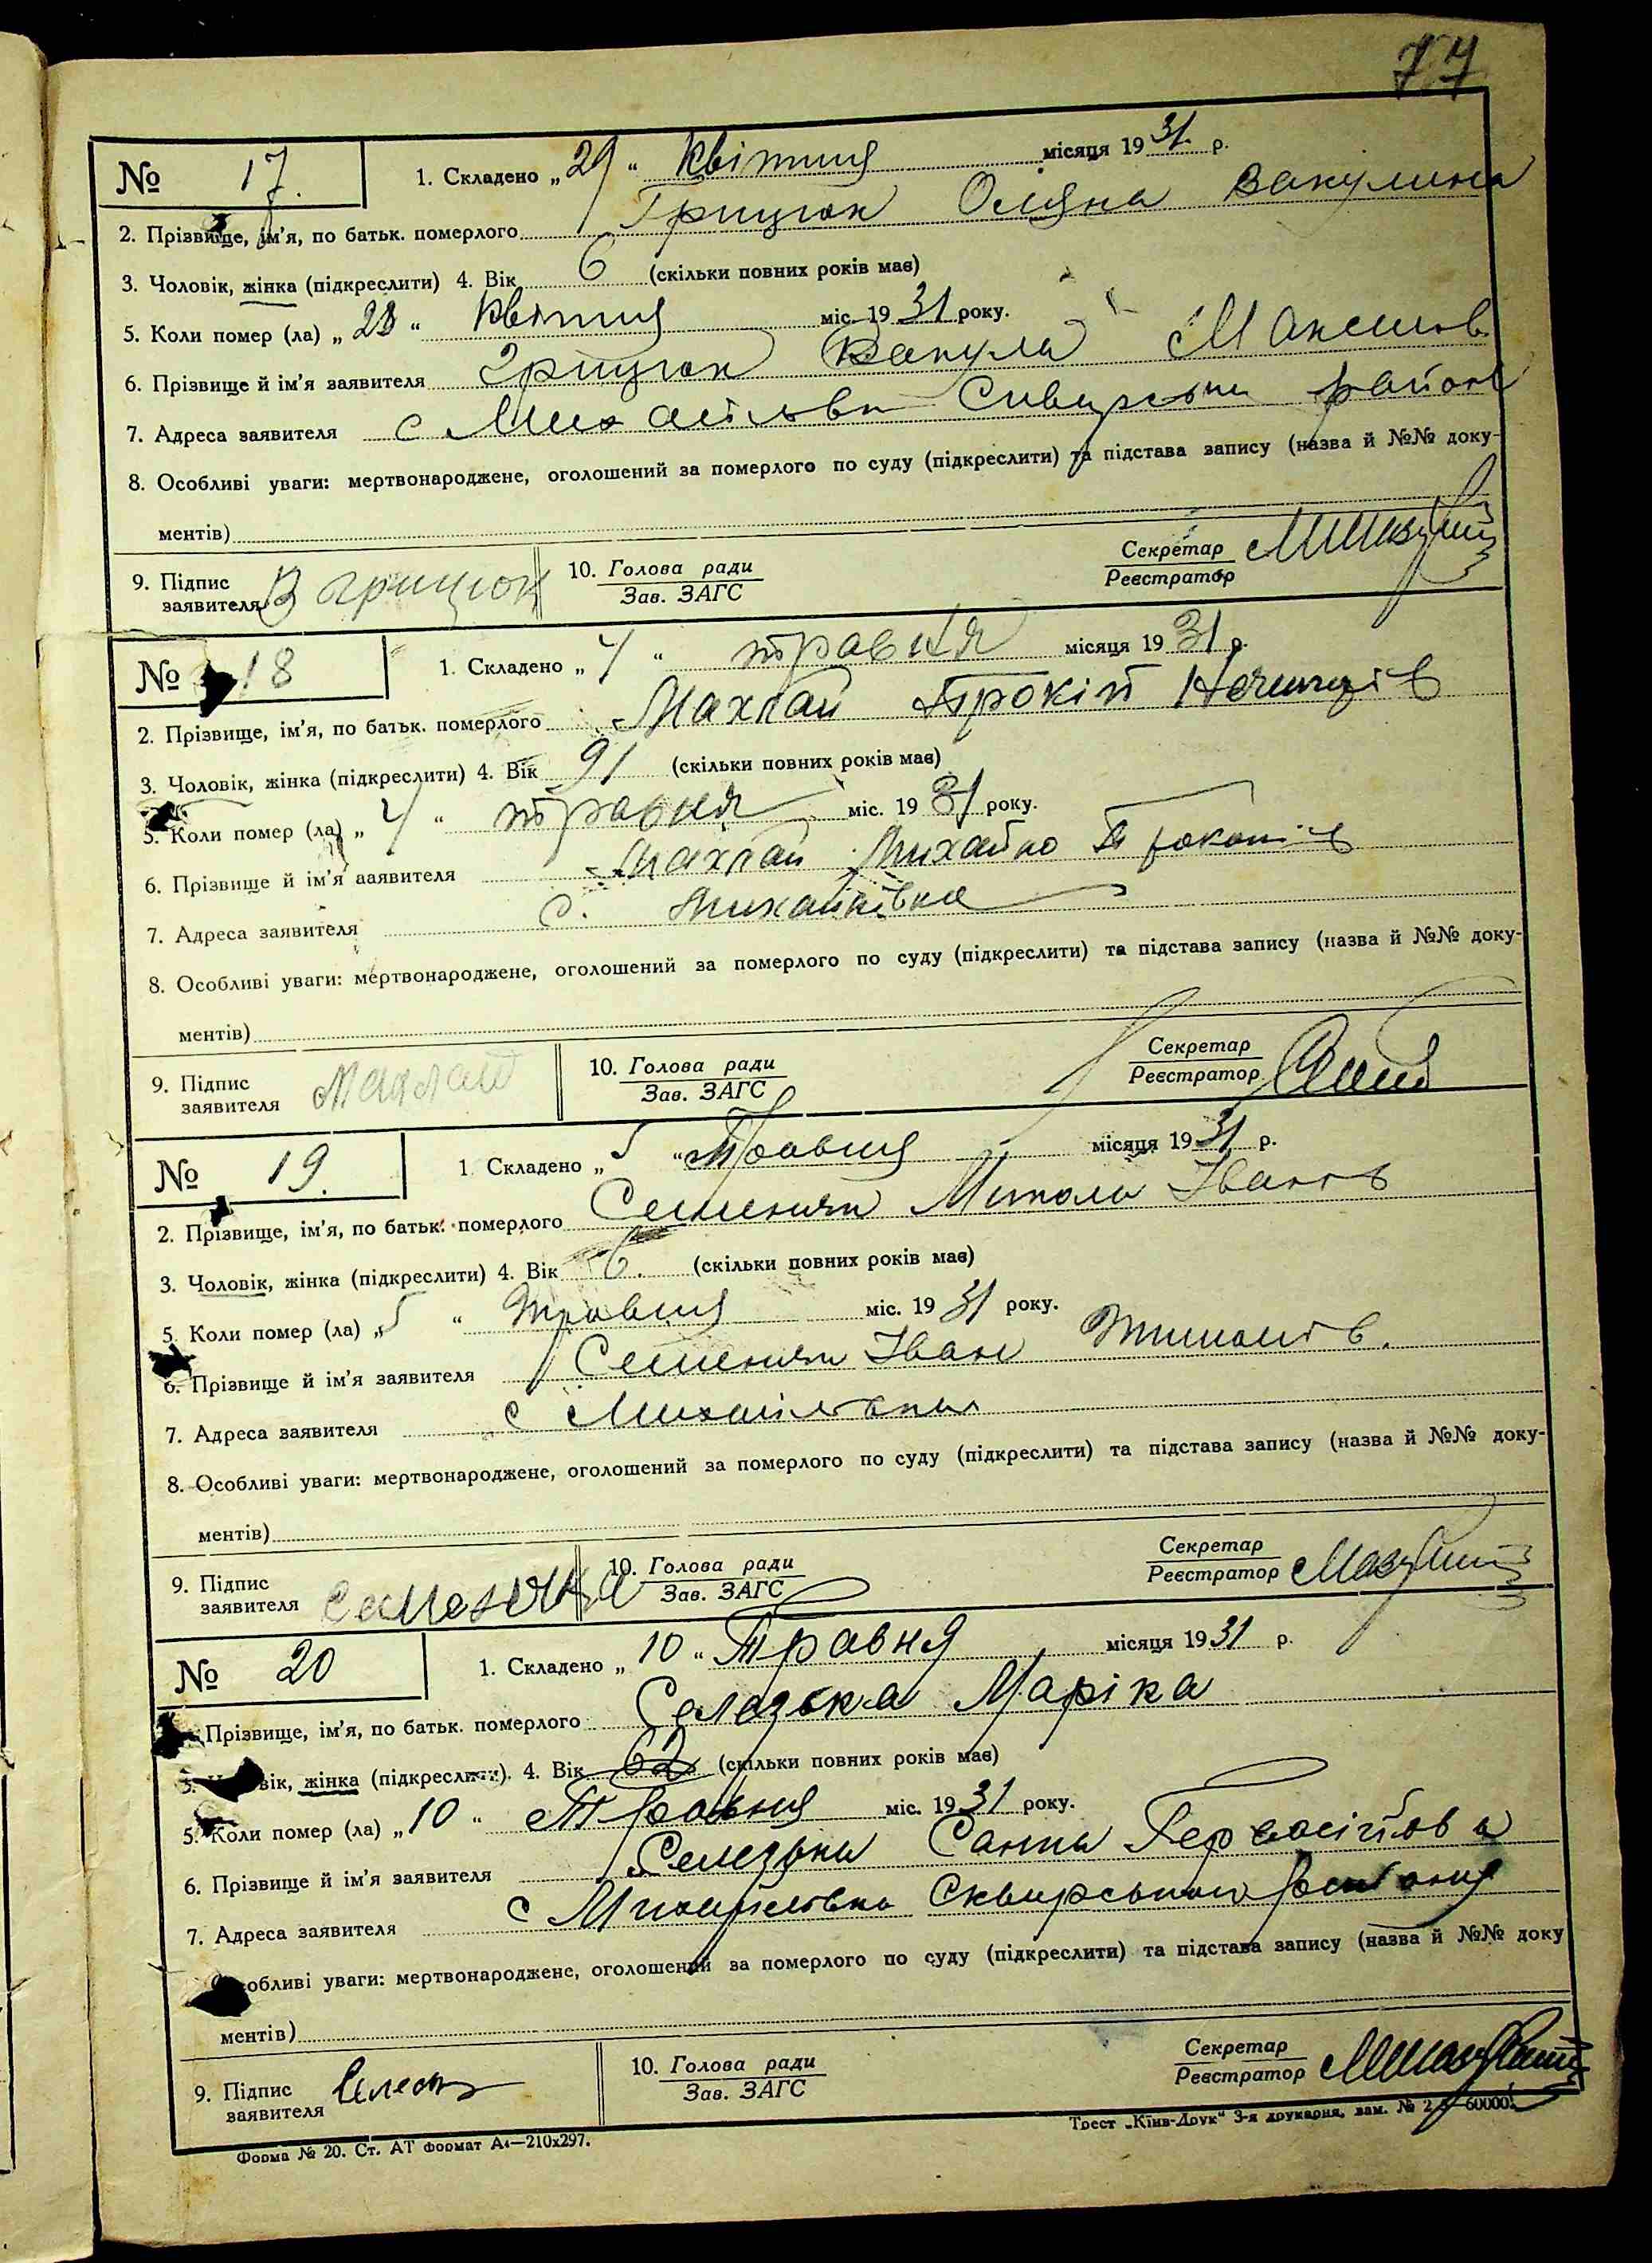 77
№ 17. 1. Складено „29“ Квітня місяця 1931 р.
2. Прізвище, ім'я, по батьк. померлого Грицюк Оляна Вакулина
3. Чоловік, жінка (підкреслити) 4. Вік 6 (скільки повних років має)
5. Коли помер (ла) „28“ Квітня міс. 1931 року.
6. Прізвище й ім'я заявителя Грицюк Вакула Максимов
7. Адреса заявителя с Михайлівки району
8. Особливі уваги: мертвонароджене, оголошений за померлого по суду (підкреслити) та підстава запису (назва й №№ доку-
ментів)
9. Підпис заявителя В Грицюк 10. Голова ради Зав. ЗАГС Секретар Реєстратор
№ 18 1. Складено „4“ травня місяця 1931 р.
2. Прізвище, ім'я, по батьк. померлого Махлай Прокіп
3. Чоловік, жінка (підкреслити) 4. Вік 91 (скільки повних років має)
5. Коли помер (ла) „4“ травня міс. 1931 року.
6. Прізвище й ім'я заявителя Махлай Михайло Прокопів
7. Адреса заявителя с. Михайлівка
8. Особливі уваги: мертвонароджене, оголошений за померлого по суду (підкреслити) та підстава запису (назва й №№ доку-
ментів)
9. Підпис заявителя Махлай 10. Голова ради Зав. ЗАГС Секретар Реєстратор
№ 19. 1. Складено „5“ Травня місяця 1931 р.
2. Прізвище, ім'я, по батьк. померлого Микола Іванов
3. Чоловік, жінка (підкреслити) 4. Вік 6. (скільки повних років має)
5. Коли помер (ла) „5“ Травня міс. 1931 року.
6. Прізвище й ім'я заявителя Іван
7. Адреса заявителя с Михайлівка
8. Особливі уваги: мертвонароджене, оголошений за померлого по суду (підкреслити) та підстава запису (назва й №№ доку-
ментів)
9. Підпис заявителя 10. Голова ради Зав. ЗАГС Секретар Реєстратор
№ 20 1. Складено „10“ Травня місяця 1931 р.
Прізвище, ім'я, по батьк. померлого Селезька Маріка
3. вік, жінка (підкреслити). 4. Вік 62 (скільки повних років має)
5. Коли помер (ла) „10“ Травня міс. 1931 року.
6. Прізвище й ім'я заявителя
7. Адреса заявителя с Михайлівка Сквирського району
обливі уваги: мертвонароджене, оголошений за померлого по суду (підкреслити) та підстава запису (назва й №№ доку
ментів)
9. Підпис заявителя 10. Голова ради Зав. ЗАГС Секретар Реєстратор
Форма № 20. Ст. АТ Формат А4—210х297. Трест „Київ-Друк“ 3-я друкарня, зам. №